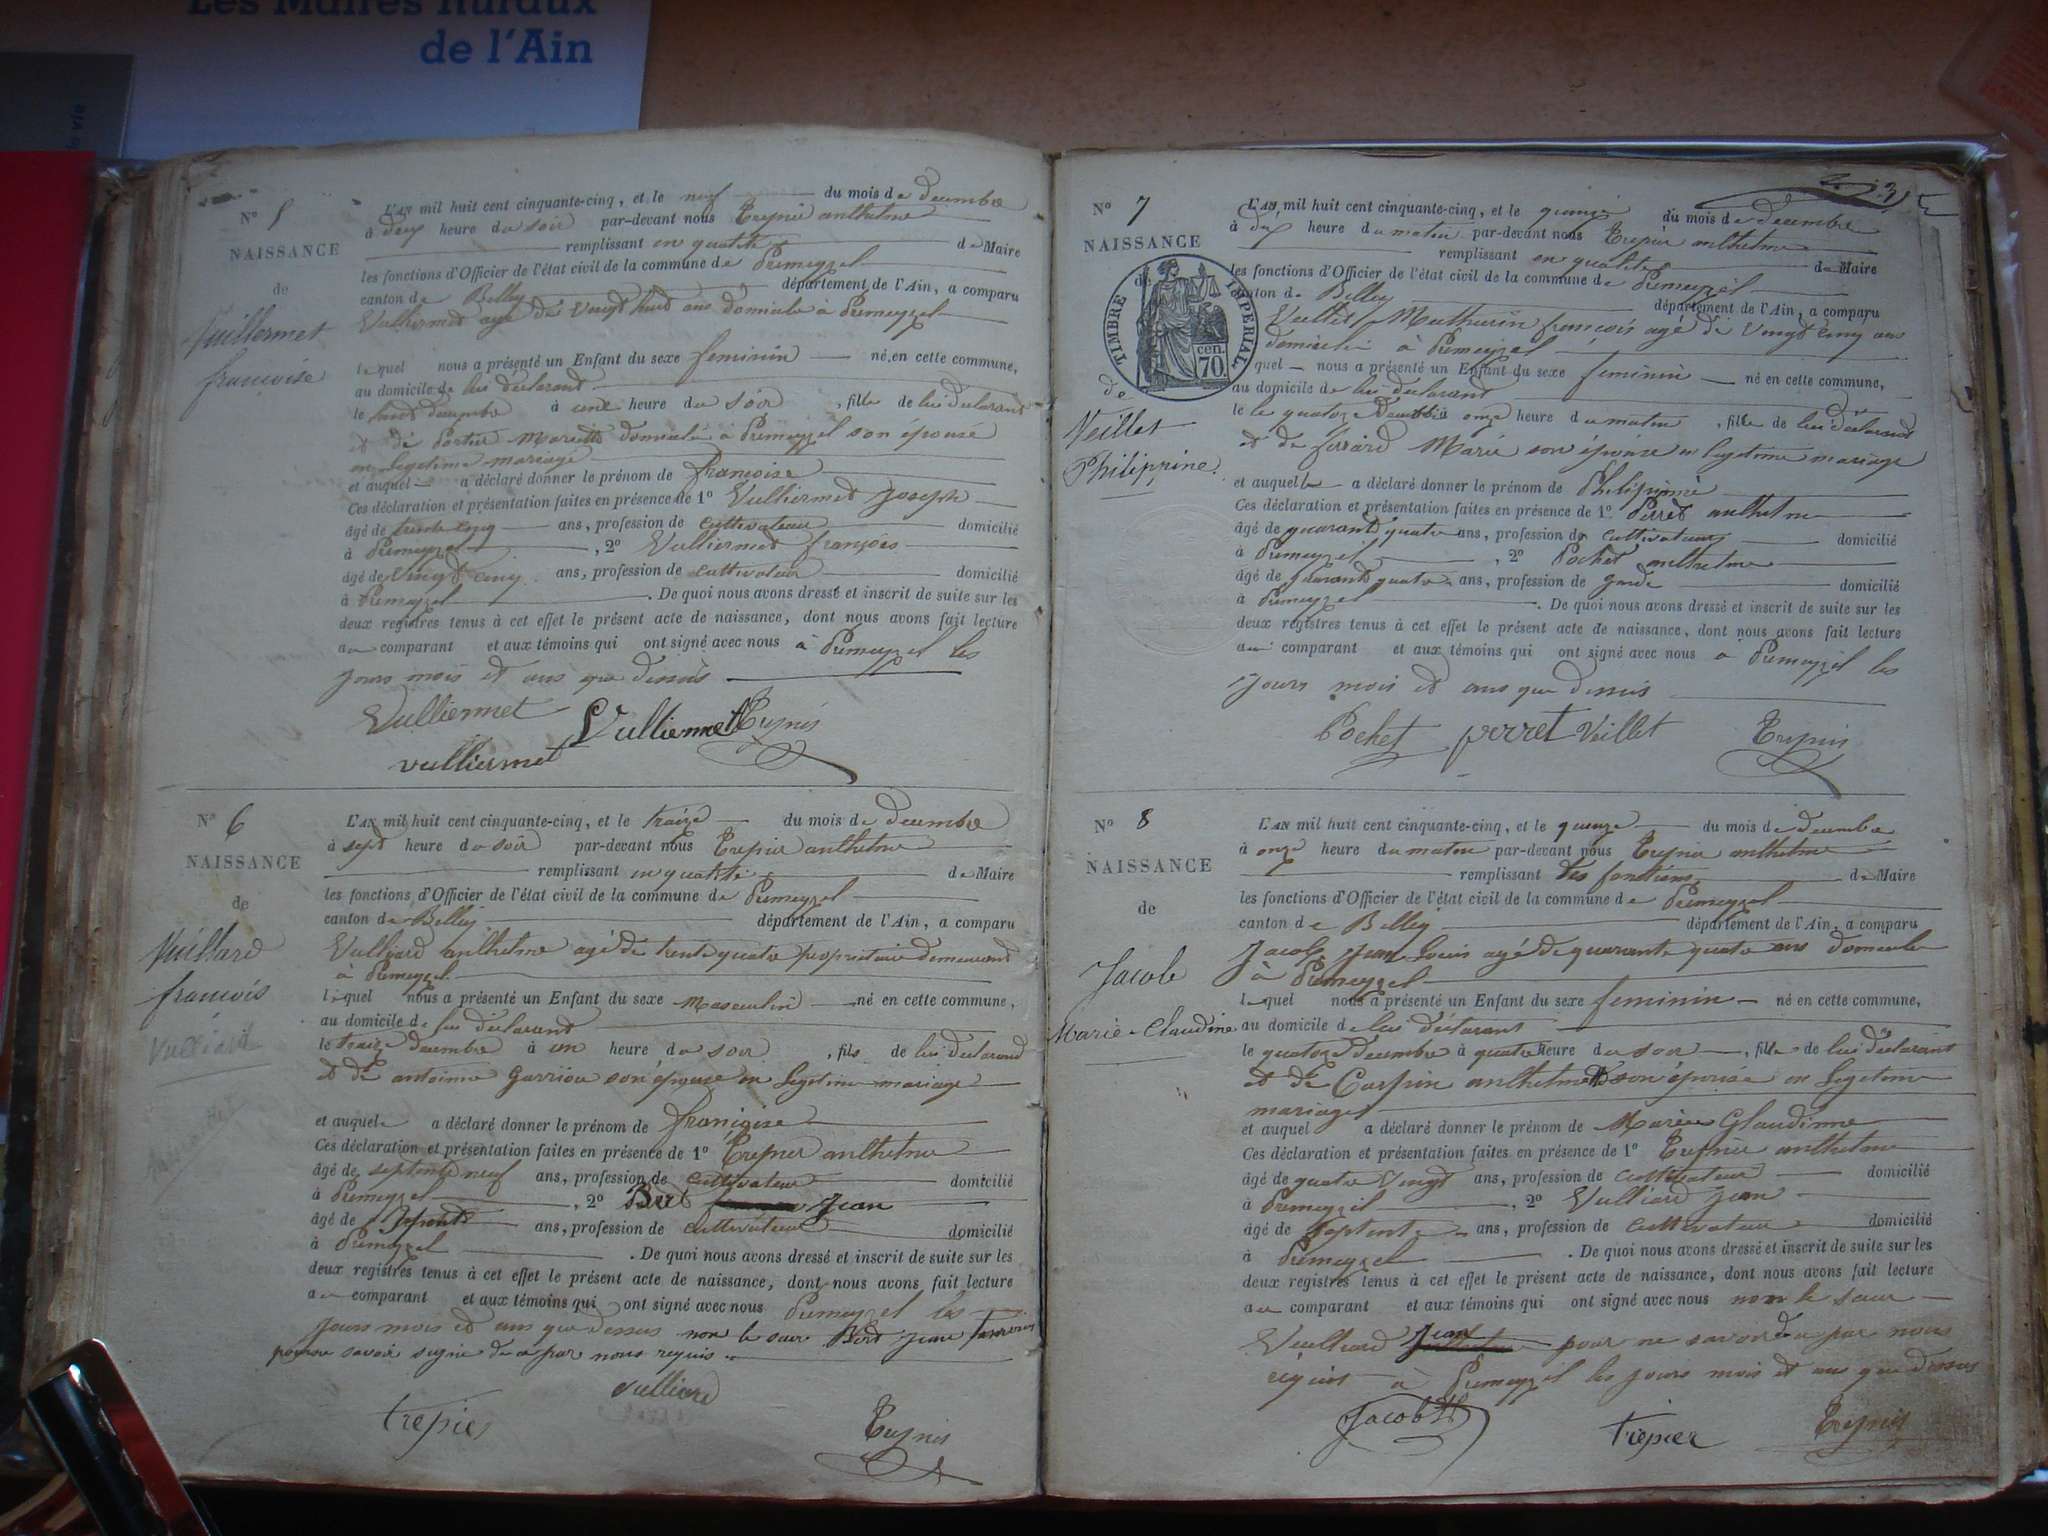 Les Maires Ruraux
de l'Ain
de vie
N° 5
NAISSANCE
de
Vuillermet
françoise
L'AN mil huit cent cinquante-cinq, et le neuf du mois de decembre
à deux heure du soir par-devant nous Trepier anthelme
remplissant en qualité de Maire
les fonctions d'Officier de l'état civil de la commune de Premeyzel
canton de Belley département de l'Ain, a comparu
Vulliermet agé de vingt huit ans domicilie à Premeyzel
lequel nous a présenté un Enfant du sexe feminin né en cette commune,
au domicile de lui déclarant
le huit decembre à une heure du soir, fille de lui déclarant
et de Portier Mariette domicilié à Premeyzel son épouse
en legetime mariage
et auquel a déclaré donner le prénom de françoise
Ces déclaration et présentation faites en présence de 1° Vulliermet Joseph
âgé de trente cinq ans, profession de cultivateur domicilié
à Premeyzel, 2° Vulliermet françois
âgé de vingt cinq ans, profession de cultivateur domicilié
à Premeyzel. De quoi nous avons dressé et inscrit de suite sur les
deux registres tenus à cet effet le présent acte de naissance, dont nous avons fait lecture
au comparant et aux témoins qui ont signé avec nous à Premeyzel les
jours mois et ans que dessus
Vulliermet Vulliermet Trepier
vulliermet
N° 6
NAISSANCE
de
Vuilliard
françois
Vulliard
L'AN mil huit cent cinquante-cinq, et le traize du mois de decembre
à sept heure du soir par-devant nous Trepier anthelme
remplissant en qualité de Maire
les fonctions d'Officier de l'état civil de la commune de Premeyzel
canton de Belley département de l'Ain, a comparu
Vulliard anthelme agé de trente quatre propriétaire demeurant
à Premeyzel
lequel nous a présenté un Enfant du sexe Masculin né en cette commune,
au domicile de lui déclarant
le traize decembre à un heure du soir, fils de lui déclarant
et de antoinne Garriou son épouse en legetime mariage
et auquel a déclaré donner le prénom de françoise
Ces déclaration et présentation faites en présence de 1° Trepier anthelme
âgé de septente neuf ans, profession de cultivateur domicilié
à Premeyzel, 2° Bert Jean
âgé de ans, profession de cultivateur domicilié
à Premeyzel. De quoi nous avons dressé et inscrit de suite sur les
deux registres tenus à cet effet le présent acte de naissance, dont nous avons fait lecture
au comparant et aux témoins qui ont signé avec nous Premeyzel les
jours mois et ans que dessus non le sieur Bert Jean
savoir signé de ce par nous requis
vulliard
trepier Trepier
N° 7
NAISSANCE
de
TIMBRE IMPERIAL
cen.
70
de
Veillet
Philippine
L'AN mil huit cent cinquante-cinq, et le quinze du mois de decembre
à dix heure du matin par-devant nous Trepier anthelme
remplissant en qualité de Maire
les fonctions d'Officier de l'état civil de la commune de Premeyzel
canton de Belley département de l'Ain, a comparu
Veillet Mathurin françois agé de vingt cinq ans
domicilié à Premeyzel
lequel nous a présenté un Enfant du sexe feminin né en cette commune,
au domicile de lui déclarant
le le quatorze Decembre à onze heure du matin, fille de lui déclarant
et de Marie son épouse en legetime mariage
et auquelle a déclaré donner le prénom de Philipinne
Ces déclaration et présentation faites en présence de 1° Perret anthelme
âgé de quarante quatre ans, profession de cultivateur domicilié
à Premeyzel, 2° Pochet anthelme
âgé de quarante quatre ans, profession de garde domicilié
à Premeyzel. De quoi nous avons dressé et inscrit de suite sur les
deux registres tenus à cet effet le présent acte de naissance, dont nous avons fait lecture
au comparant et aux témoins qui ont signé avec nous à Premeyzel les
jours mois et ans que dessus
Pochet perret Veillet Trepier
N° 8
NAISSANCE
de
Jacob
Marie-Claudine
L'AN mil huit cent cinquante-cinq, et le quinze du mois de decembre
à onze heure du matin par-devant nous Trepier anthelme
remplissant les fonctions de Maire
les fonctions d'Officier de l'état civil de la commune de Premeyzel
canton de Belley département de l'Ain, a comparu
Jacob Jean Louis agé de quarante quatre ans domicilie
à Premeyzel
lequel nous a présenté un Enfant du sexe feminin né en cette commune,
au domicile de lui déclarant
le quatorze Decembre à quatre heure du soir, fille de lui déclarant
et de Carpin anthelmette son épouse en legetime
mariage
et auquel a déclaré donner le prénom de Marie Glaudinne
Ces déclaration et présentation faites en présence de 1° Trepier anthelme
âgé de quatre vingt ans, profession de cultivateur domicilié
à Premeyzel, 2° Vulliard Jean
âgé de septente ans, profession de cultivateur domicilié
à Premeyzel. De quoi nous avons dressé et inscrit de suite sur les
deux registres tenus à cet effet le présent acte de naissance, dont nous avons fait lecture
au comparant et aux témoins qui ont signé avec nous non le sieur
Vuilliard Jean pour ne savoir de ce par nous
réquis à Premeyzel les jours mois et an que dessus
Jacob trepier Trepier